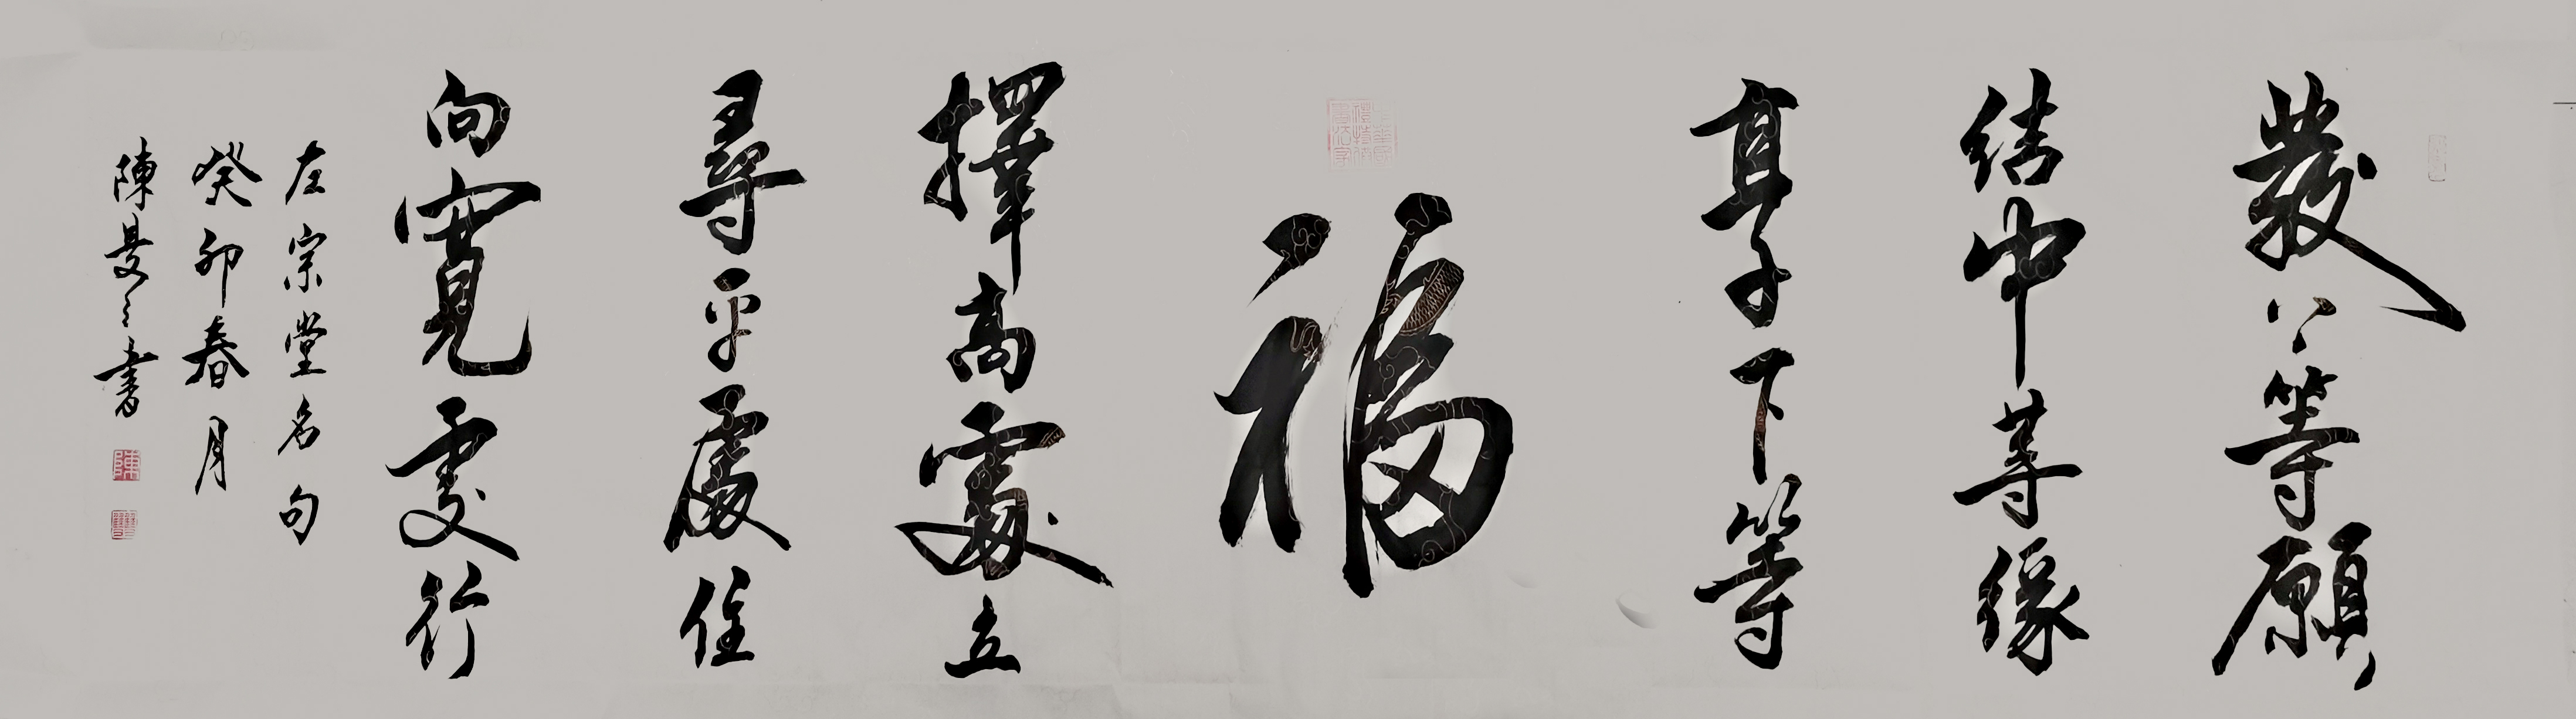 發上等願
結中等緣
享下等
福
擇高處立
尋平處住
向寬處行
左宗堂名句
癸卯春月
陳曼々書
陳